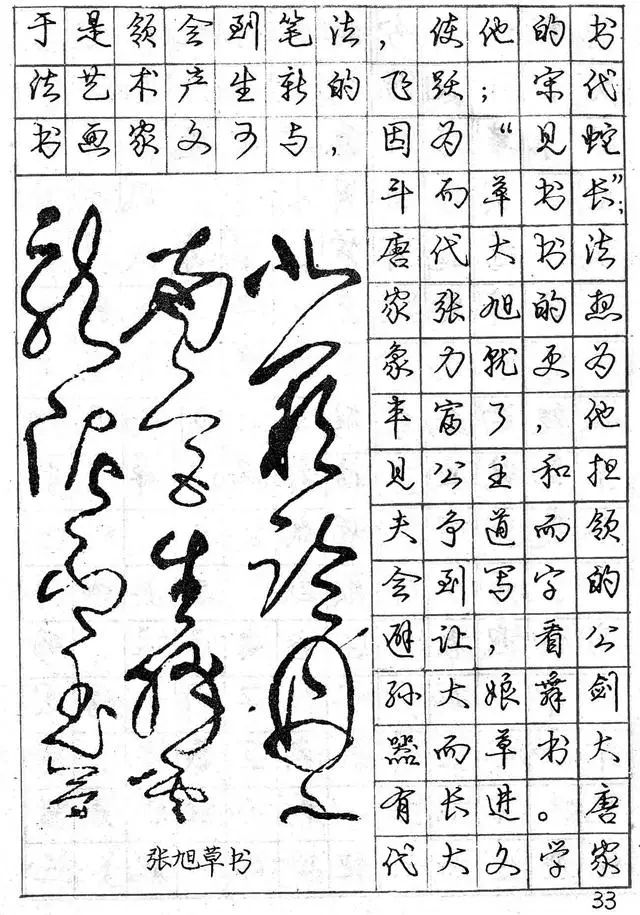 于是领会到笔法，使他的书
法艺术产生新的飞跃；宋代
书画家文可与，因为“见蛇
斗而草书长”；
唐代大书法
家张旭的想
象力就更为
丰富了，他
见公主和担
夫争道而领
会到写字的
避让，看公
孙大娘舞剑
器而草书大
有长进。唐
代大文学家
北闕臨丹水
南宮生絳雲
龍泥印玉簡
张旭草书
33